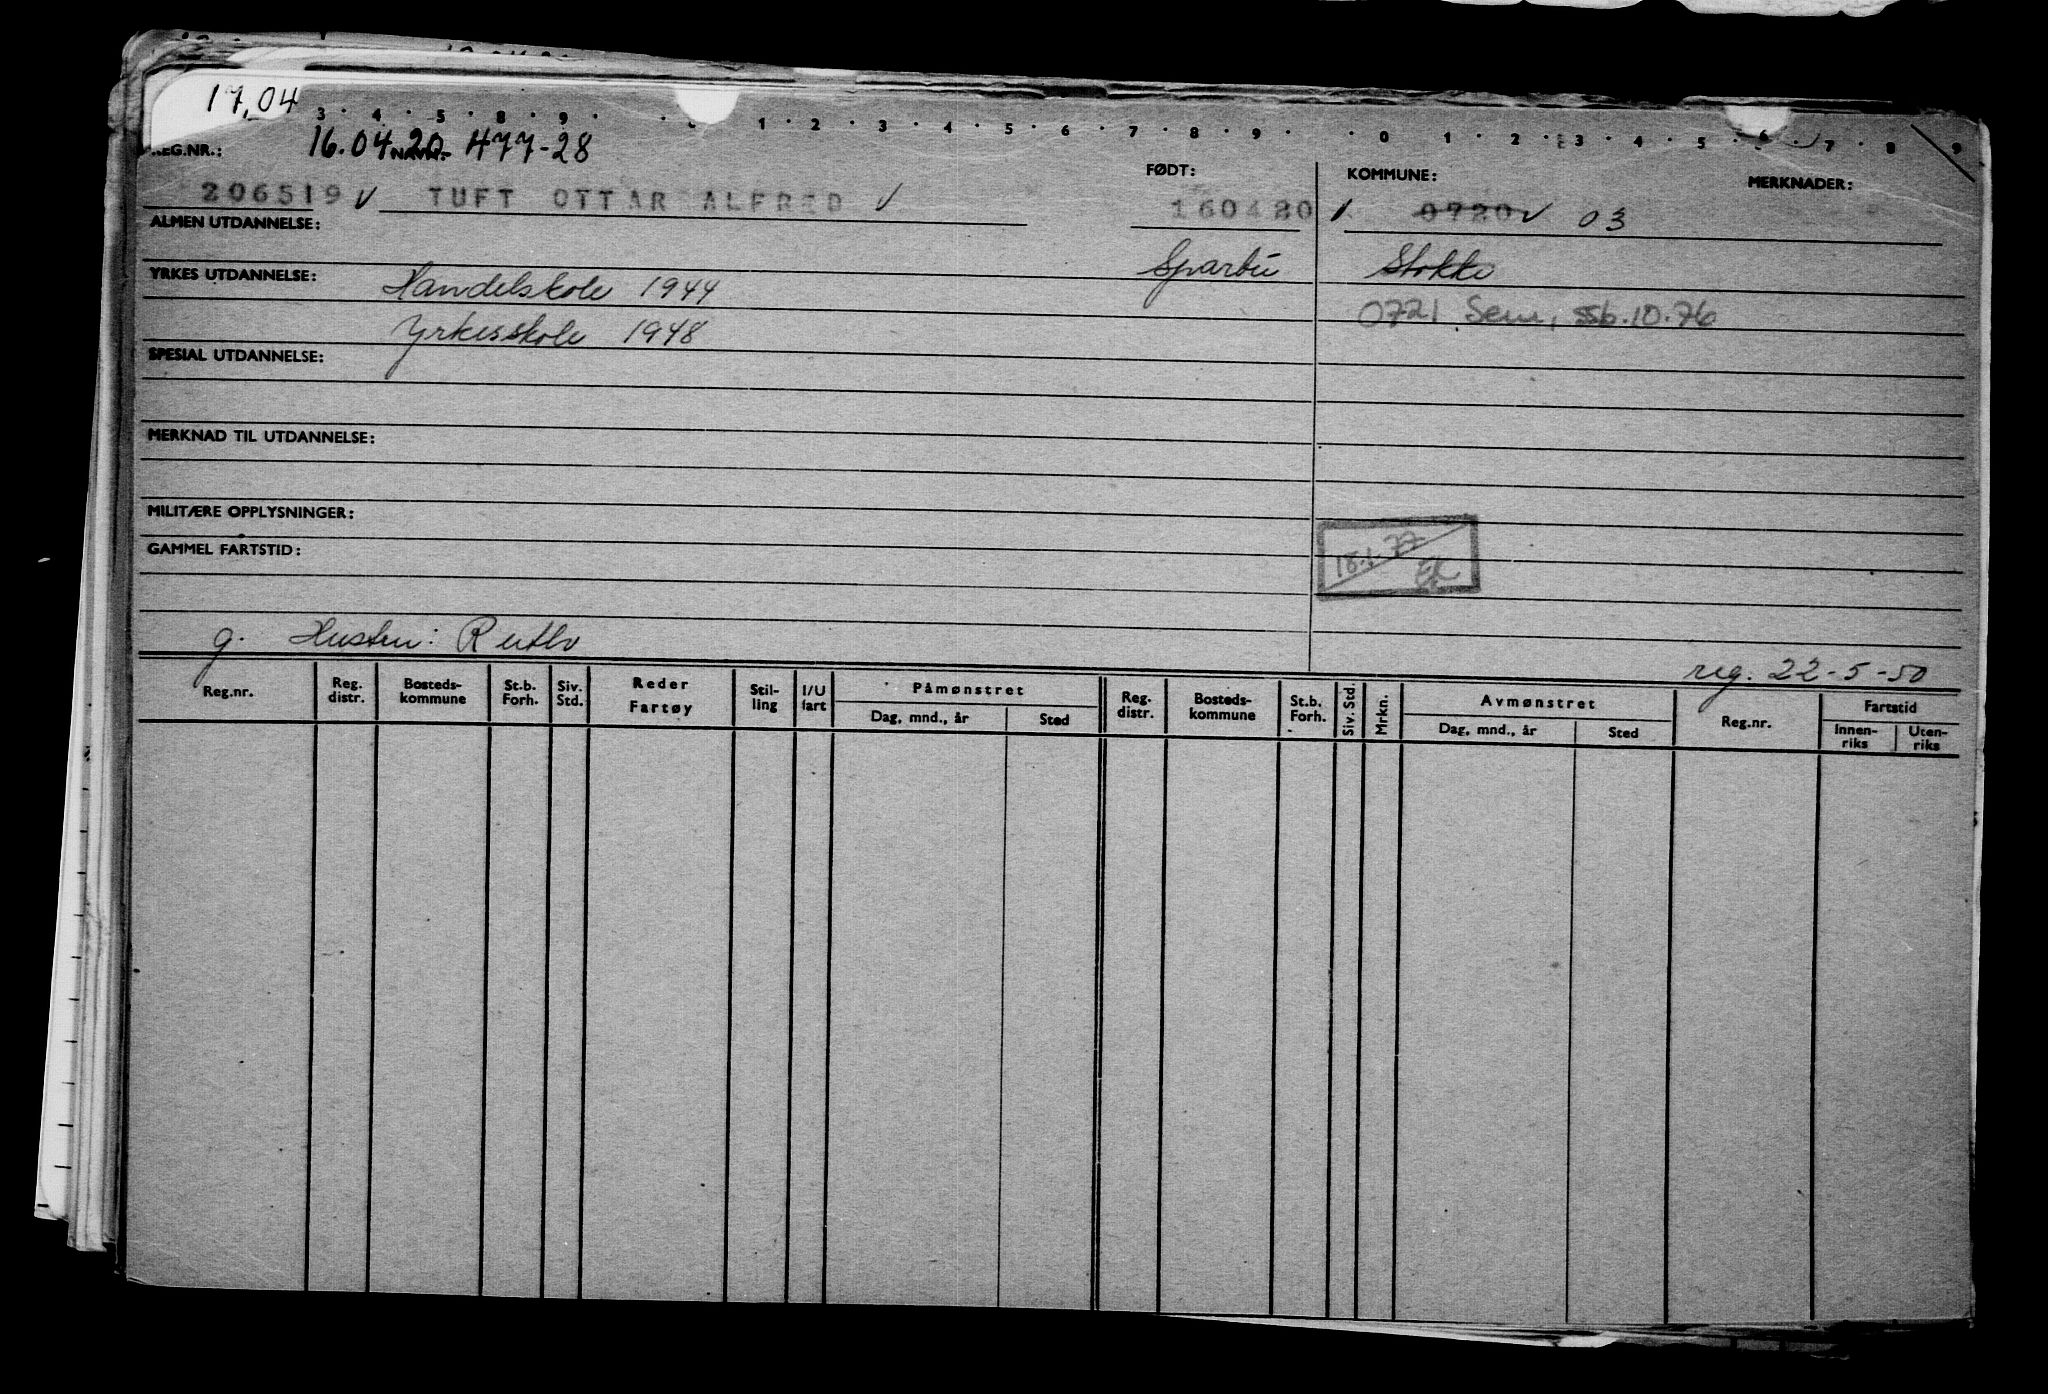 17,04
3 · 4 · 5 · 8 · 9 · 1 · 2 · 3 · 4 · 5 · 6 · 7 · 8 · 9 · 0 · 1 · 2 · 3 · 4 · 5 · 6 · 7 · 8 · 9
16.04.20 477-28
REG.NR.: NAVN: FØDT: KOMMUNE: MERKNADER:
206519 ✓ TUFT OTTAR ALFRED ✓ 160420 ✓ 0720 ✓ 03
ALMEN UTDANNELSE:
Sparbu Stokke
YRKES UTDANNELSE: Handelskole 1944
0721 Sem, ssb.10.76
Yrkesskole 1948
SPESIAL UTDANNELSE:
MERKNAD TIL UTDANNELSE:
MILITÆRE OPPLYSNINGER:
GAMMEL FARTSTID:
18.1.77
g. Husten: Ruth
reg. 22-5-50
Reg.nr. Reg. distr. Bosteds-kommune St.b. Forh. Siv. Std. Reder Fartøy Stil-ling I/U fart Påmønstret Reg. distr. Bosteds-kommune St.b. Forh. Siv. Std. Mrkn. Avmønstret Reg.nr. Fartstid
Dag, mnd., år Sted Dag, mnd., år Sted Innen-riks Uten-riks